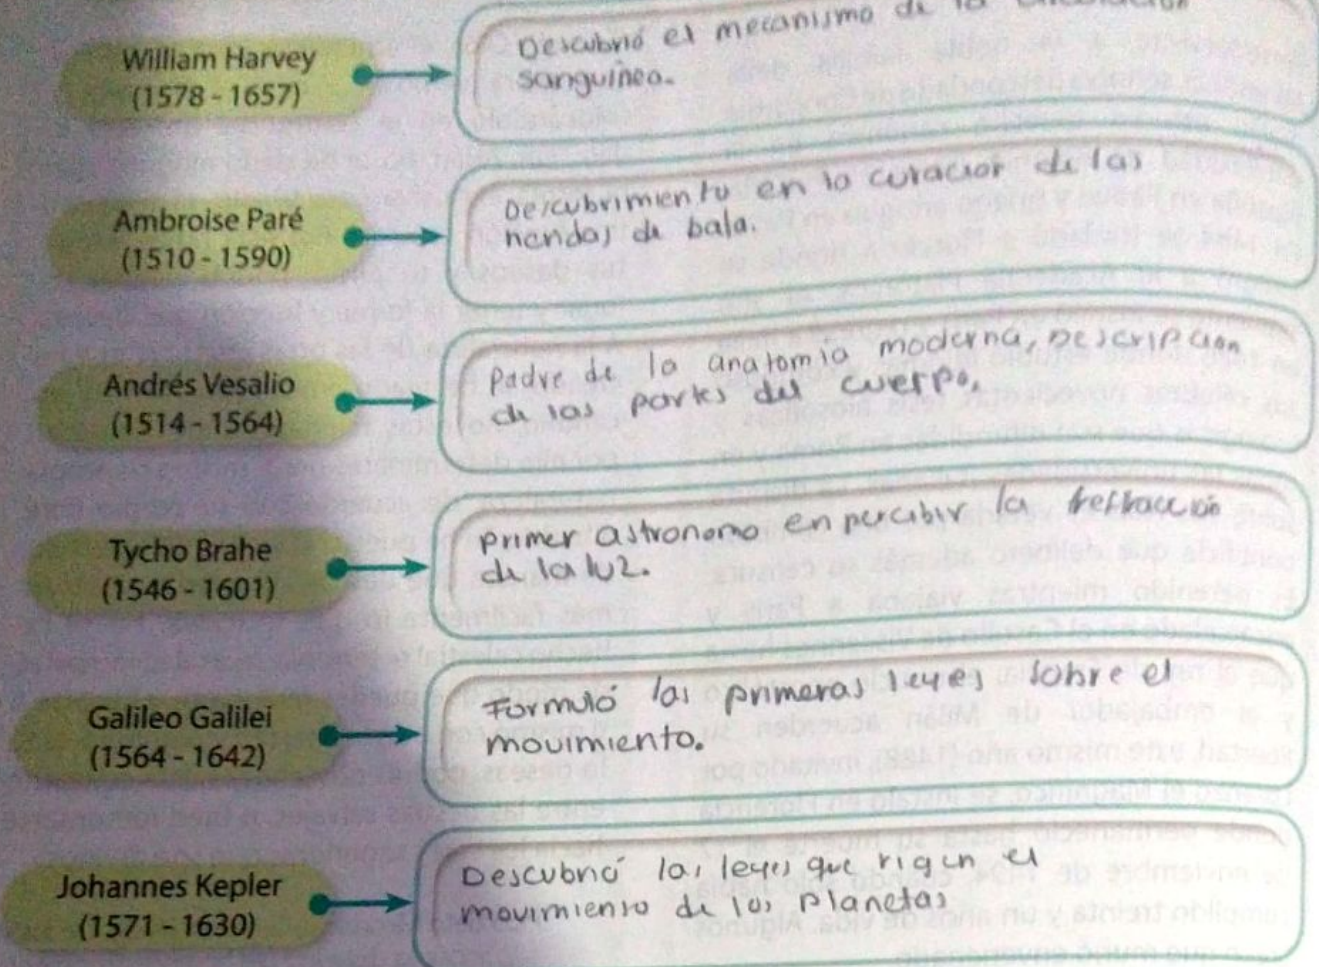 William Harvey
(1578 - 1657)
Descubrió el mecanismo de la
sanguínea.
Ambroise Paré
(1510 - 1590)
Descubrimiento en la curación de las
heridas de bala.
Andrés Vesalio
(1514 - 1564)
Padre de la anatomía moderna, Descripción
de las partes del cuerpo.
Tycho Brahe
(1546 - 1601)
primer astronomo en percibir la refracción
de la luz.
Galileo Galilei
(1564 - 1642)
Formuló las primeras leyes sobre el
movimiento.
Johannes Kepler
(1571 - 1630)
Descubrió las leyes que rigen el
movimiento de los planetas